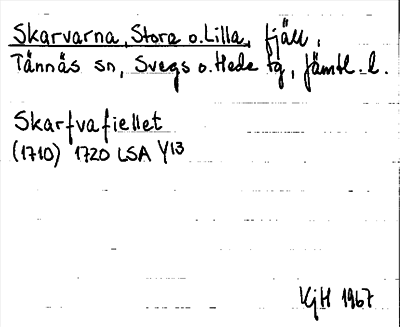 Skarvarna, Stora o. Lilla, fjäll,
Tännäs sn, Svegs o. Hede tg, Jämtl. l.
Skarfvafiellet
(1710) 1720 LSA Y13
KjH 1967